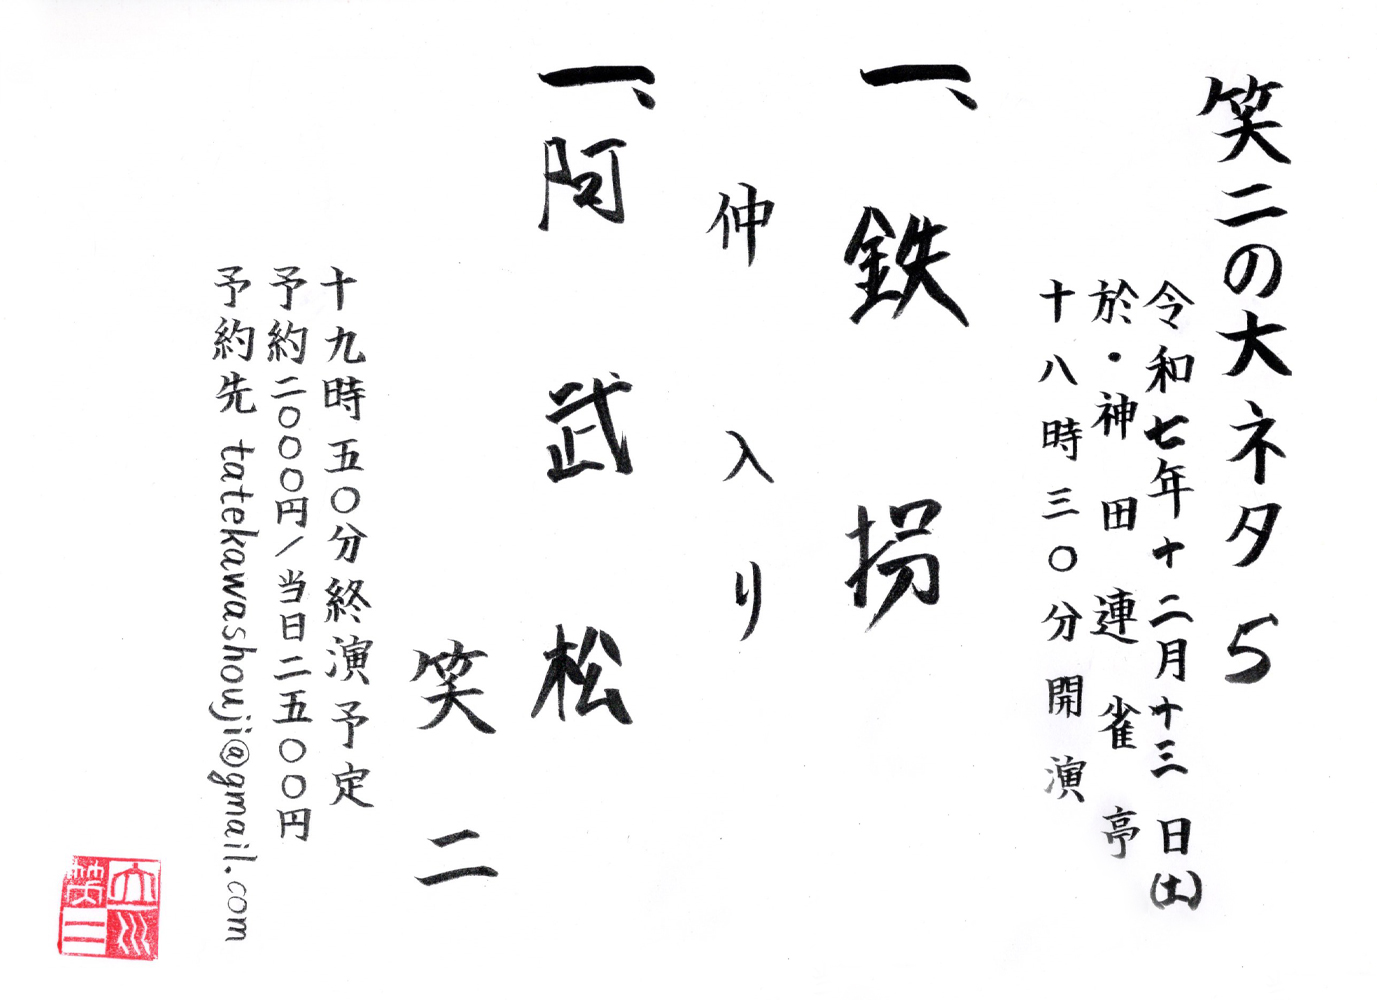 笑二の大ネタ5
令和七年十二月十三日(土)
於・神田連雀亭
十八時三〇分開演
一、鉄拐
仲入り
一、阿武松
笑二
十九時五〇分終演予定
予約二〇〇〇円/当日二五〇〇円
予約先 tatekawashouji@gmail.com
立川
笑二